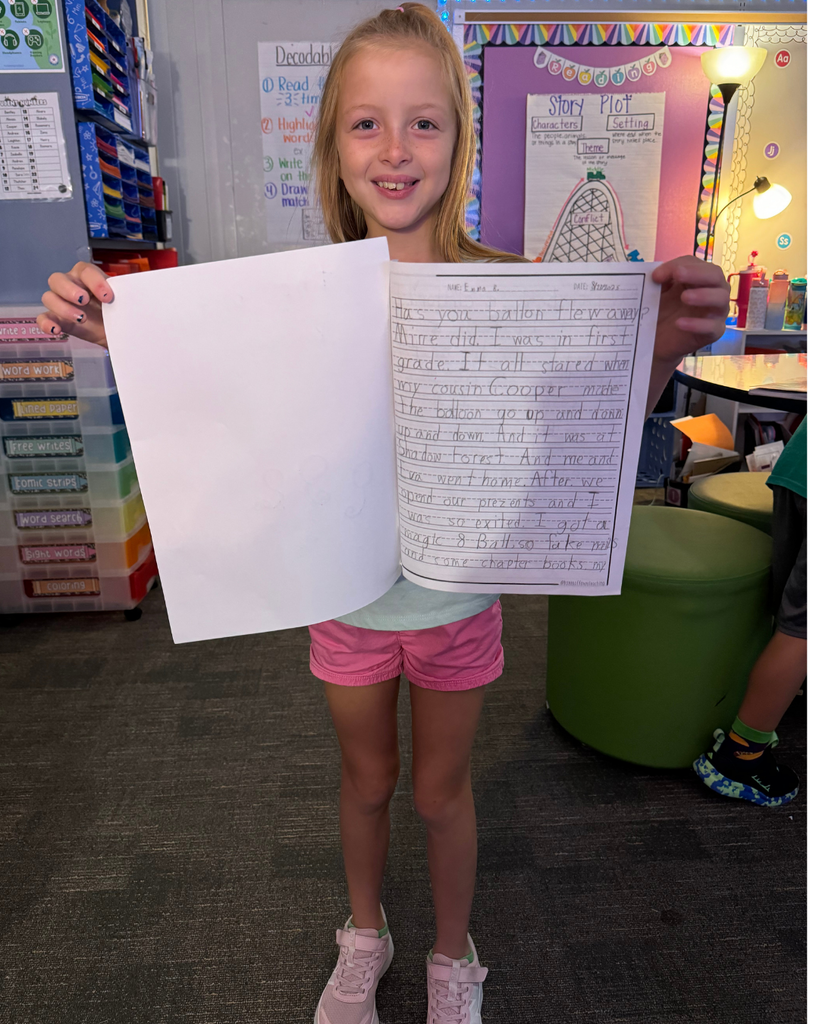 Decodabl
① Read
3 tim
② Highlig
word
ex:
③ Write
on th
④ Draw
match
Reading
Story Plot
Characters
Setting
Theme
Conflict
Aa
Jj
Ss
write a lett
word work
lined paper
free writes
comic strips
word search
sight words
coloring
NAME: Emma R. DATE:
Has you ballon flew away?
Mine did. I was in first
grade. It all stared when
my cousin Cooper made
the baloon go up and down
up and down. And it was at
Shadow Forest. And me and
went home. After we
opend our prezents and I
was so exited. I got a
magic 8 Ball, so fake nails
and come chapter books my